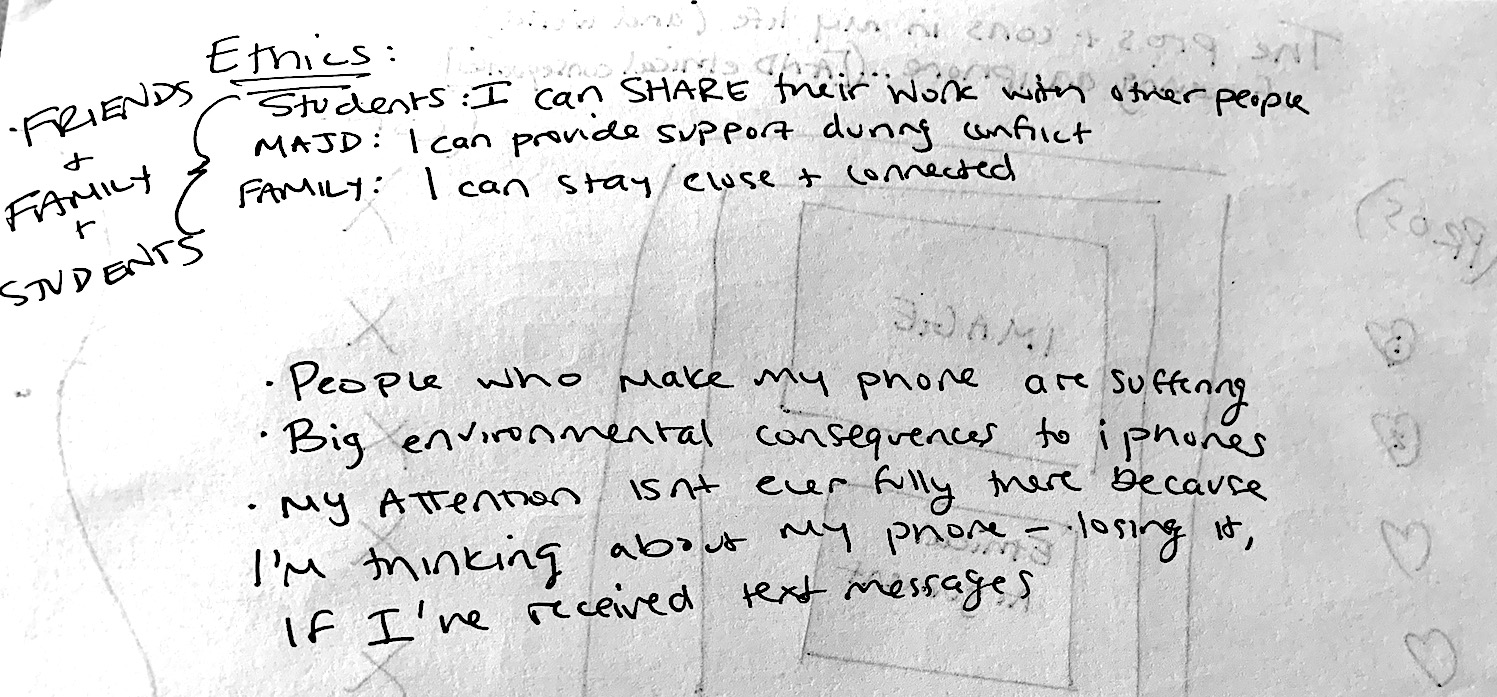 Ethics:
· FRIENDS
+
FAMILY
+
STUDENTS
Students: I can SHARE their work with other people
MAJD: I can provide support during conflict
FAMILY: I can stay close + connected
· People who make my phone are suffering
· Big environmental consequences to iphones
· My Attention isnt ever fully there because
I'm thinking about my phone – losing it,
IF I've received text messages
The pros + cons in my life (and
(PROS)
IMAGE